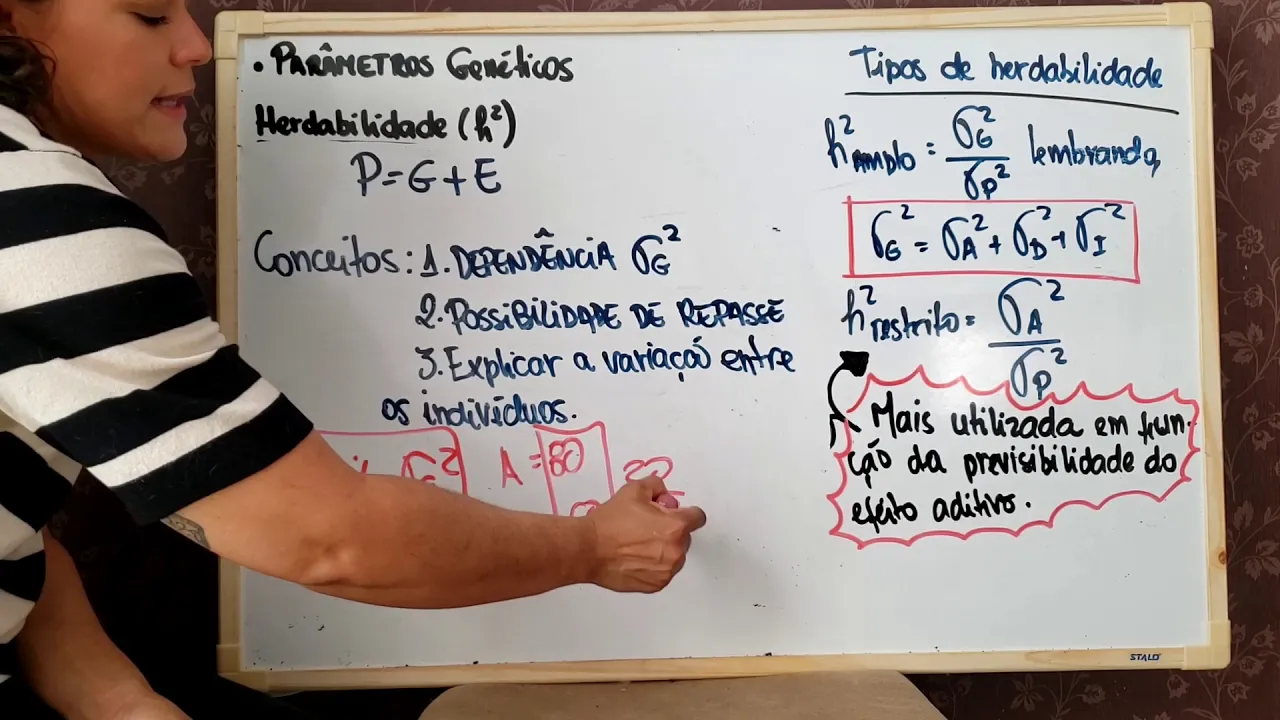 • PARÂMETROS Genéticos
Herdabilidade (h²)
P=G+E
Conceitos: 1. DEPENDÊNCIA σG²
2. POSSIBILIDADE DE REPASSE
3. Explicar a variação entre
os indivíduos.
σG²
A = 80
Tipos de herdabilidade
h² AMPLO = σG²/σP² lembrando,
σG² = σA² + σD² + σI²
h² restrito = σA²/σP²
Mais utilizada em fun-
ção da previsibilidade do
efeito aditivo.
STALO